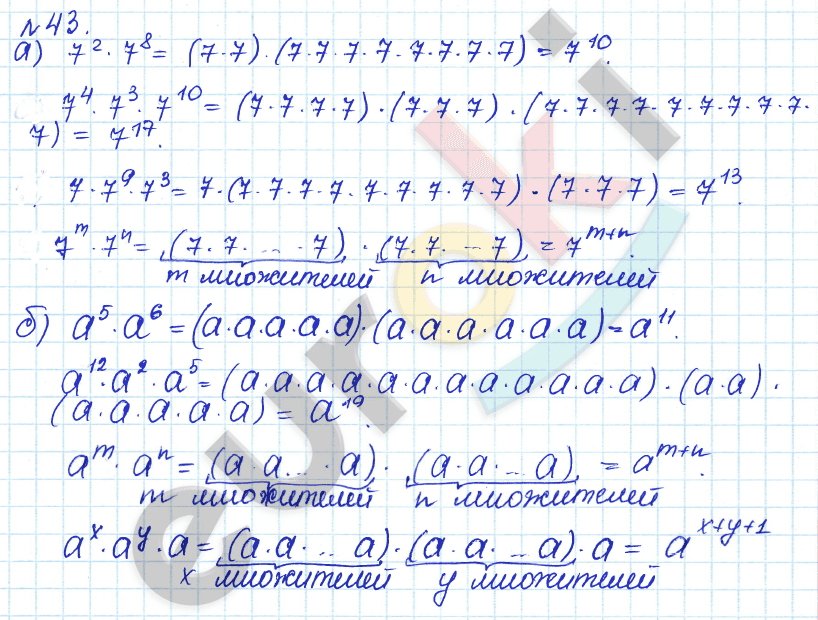 №43.
а) 7² · 7⁸ = (7·7)·(7·7·7·7·7·7·7·7) = 7¹⁰.
7⁴ · 7³ · 7¹⁰ = (7·7·7·7)·(7·7·7)·(7·7·7·7·7·7·7·7·7·
7) = 7¹⁷.
7·7⁹·7³ = 7·(7·7·7·7·7·7·7·7·7)·(7·7·7) = 7¹³.
7ᵐ·7ⁿ = (7·7·...·7)·(7·7·...7) = 7ᵐ⁺ⁿ.
m множителей n множителей
б) a⁵·a⁶ = (a·a·a·a·a)·(a·a·a·a·a·a) = a¹¹.
a¹²·a²·a⁵ = (a·a·a·a·a·a·a·a·a·a·a·a)·(a·a)·
(a·a·a·a·a) = a¹⁹.
aᵐ·aⁿ = (a·a...·a)·(a·a·...a) = aᵐ⁺ⁿ.
m множителей n множителей
aˣ·aʸ·a = (a·a·...a)·(a·a·...a)·a = aˣ⁺ʸ⁺¹
x множителей y множителей
euroki